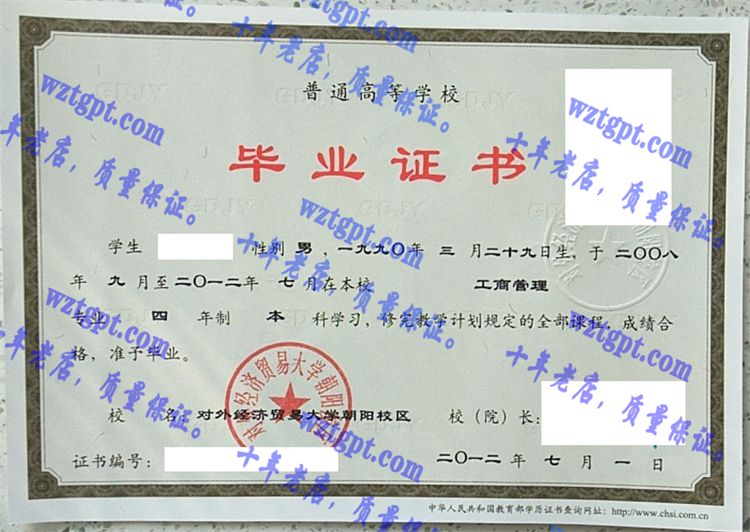 普通高等学校
毕业证书
学生 性别 男，一九九〇年 三 月二十九日生，于 二〇〇八
年 九 月至二〇一二年 七 月在本校 工商管理
专业 四 年制 本 科学习，修完教学计划规定的全部课程，成绩合
格，准予毕业。
校 名：对外经济贸易大学朝阳校区 校（院）长：
证书编号： 二〇一二 年 七 月 一 日
中华人民共和国教育部学历证书查询网址：http://www.chsi.com.cn
对外经济贸易大学朝阳
wztgpt.com
十年老店，质量保证。
wztgpt.com
十年老店，质量保证。
wztgpt.com
十年老店，质量保证。
wztgpt.com
十年老店，质量保证。
wztgpt.com
十年老店，质量保证。
wztgpt.com
十年老店，质量保证。
wztgpt.com
十年老店，质量保证。
wztgpt.com
十年老店，质量保证。